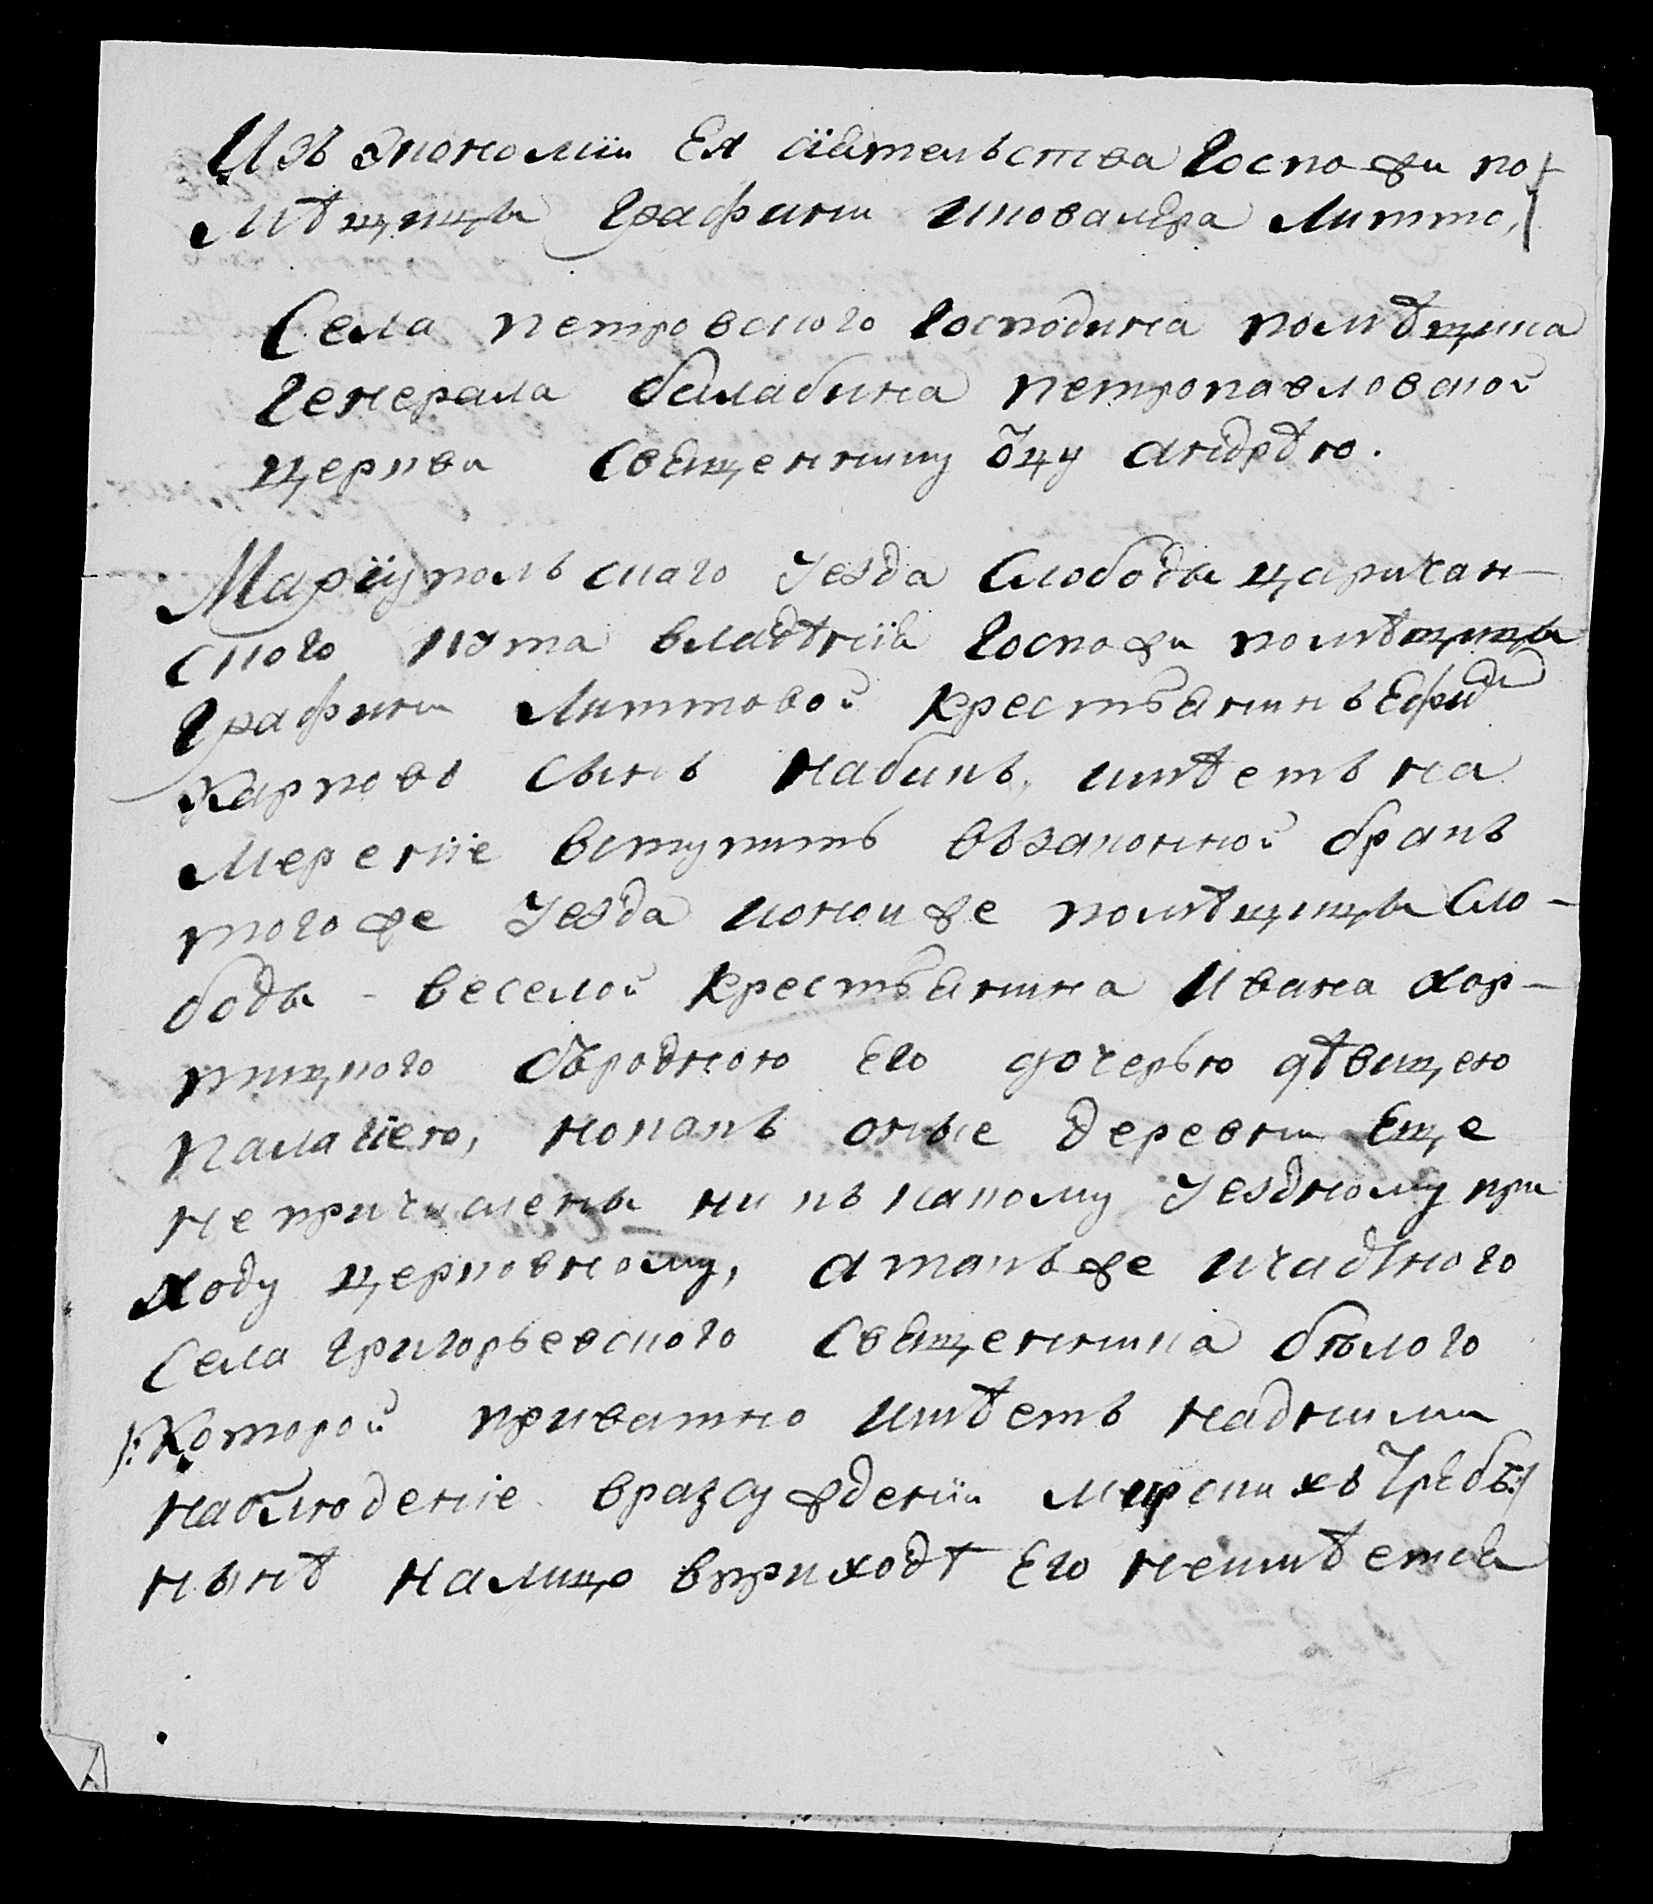 Изъ экономiи Ея сiятельства госпожи по-
мѣщицы графини иковалера Литте,
Села петровского господина помѣщика
генерала балабина петропавловской
церкви Священнику о҃цу андрѣю.
Марiупольского уезда Слободы царичан-
ского кута владѣнiя госпожи помѣщицы
графини Литтовой крестьянинъ Ефимъ
Карповъ сынъ набикъ, имѣетъ на
мерениiе вступить взаконной бракъ
тогоже уезда ионойже помѣщицы Сло-
боды - веселой крестьянина Ивана хор-
тицкого сродною Его дочерью дѣвицею
палагiею, нокакъ оные деревни Еще
не причислены ни къ какому уездному при
ходу церковному, атакъже исаднего
Села григорьевского Священника бѣлого
/:Которой приватно имѣетъ надними
наблюденiе вразсужденiи мирскихъ требъ:/
нынѣ налицо вприходѣ Его неимѣется